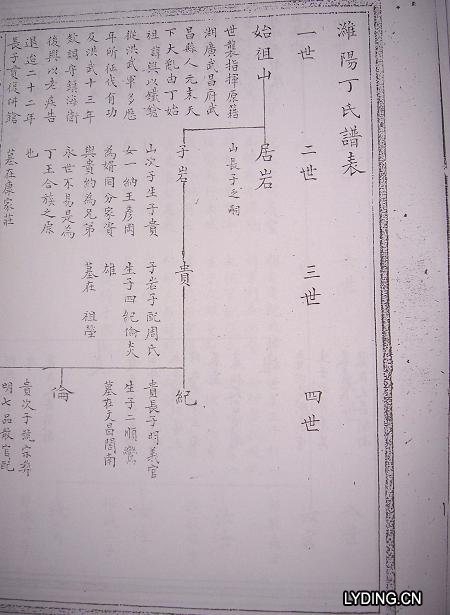 濰陽丁氏譜表
一世
二世
三世
四世
始祖山
世襲指揮原籍
湖廣武昌府武
昌縣人元末天
下大亂由丁始
祖諱興以鐵鎗
從洪武軍多歷
年所征伐有功
及洪武十三年
敕調守鎮海衛
後興以老疾告
退追二十二年
長子貴復以鎗
居岩
山長子乏嗣
子岩
山次子生子貴
女一納王彥周
為婿同分家資
與貴約為兄弟
永世不易是為
丁王合族之原
也
墓在康家莊
貴
子岩子配周氏
生子四紀倫炎
雄
墓在 祖塋
紀
貴長子明義官
生子二順鸞
墓在文昌閣南
倫
貴次子號宗
明七品散官配
LYDING.CN